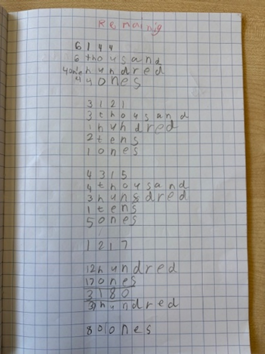 Renaing
6144
6 thousand
hundred
4 ones
3121
3 thousand
1 hundred
2 tens
1 ones
4315
4 thousand
3 hunsdred
1 tens
5 ones
1217
12 hundred
17 ones
3180
hundred
80 ones